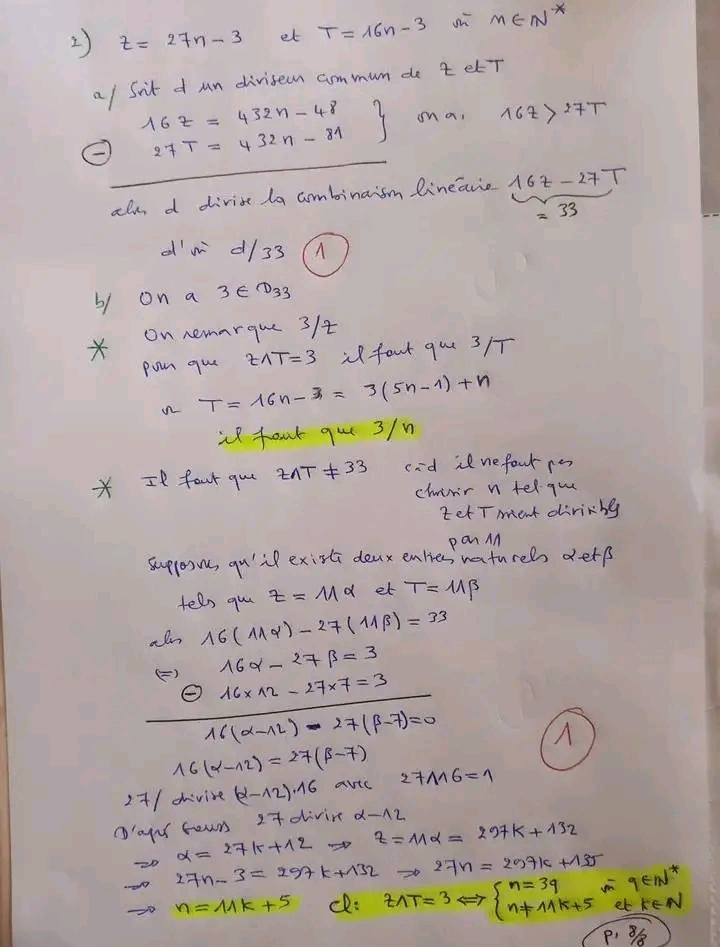 2) Z = 27n - 3 et T = 16n - 3 où n ∈ ℕ*
a/ Soit d un diviseur commun de Z et T
16Z = 432n - 48 } on a, 16Z > 27T
⊖ 27T = 432n - 81
alors d divise la combinaison linéaire 16Z - 27T
= 33
d'où d/33 ①
b/ On a 3 ∈ D33
* On remarque 3/Z
pour que Z∧T=3 il faut que 3/T
or T = 16n - 3 = 3(5n-1) + n
il faut que 3/n
* Il faut que Z∧T ≠ 33 càd il ne faut pas
choisir n tel que
Z et T soient divisibles
par 11
Supposons qu'il existe deux entiers naturels α et β
tels que Z = 11α et T = 11β
alors 16(11α) - 27(11β) = 33
(=) 16α - 27β = 3
⊖ 16×12 - 27×7 = 3
16(α-12) - 27(β-7)=0
16(α-12) = 27(β-7) ①
27/ divise (α-12).16 avec 27∧16=1
D'après Gauss 27 divise α-12
⇒ α = 27k+12 ⇒ Z = 11α = 297k+132
⇒ 27n-3 = 297k+132 ⇒ 27n = 297k+135
⇒ n = 11k+5 cl: Z∧T=3 ⇔ { n=3q où q∈ℕ*
n≠11k+5 et k∈ℕ
p. 8/8